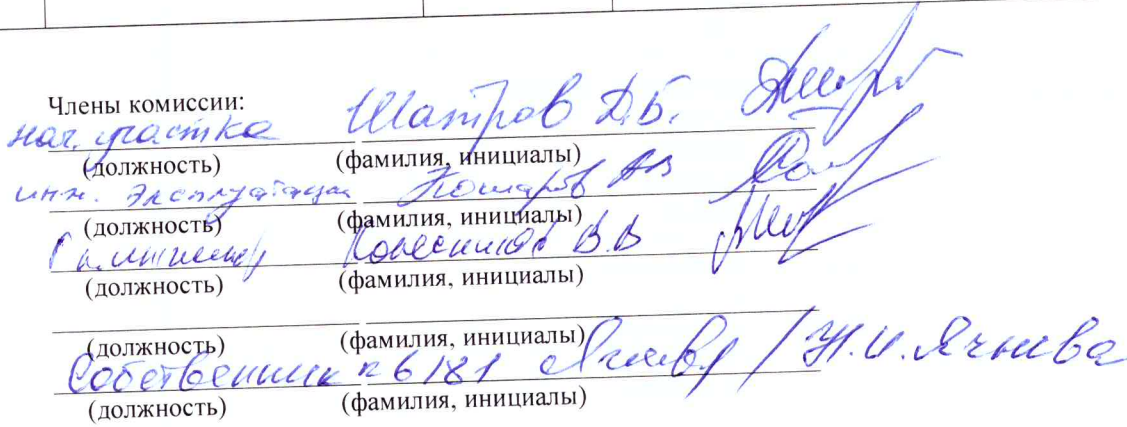 Члены комиссии:
нач. участка Шатров Д.Б.
(должность) (фамилия, инициалы)
инж. эксплуатации АВ
(должность) (фамилия, инициалы)
Гл. инженер Колесников В.В
(должность) (фамилия, инициалы)
(должность) (фамилия, инициалы)
Собственник
(должность) (фамилия, инициалы)